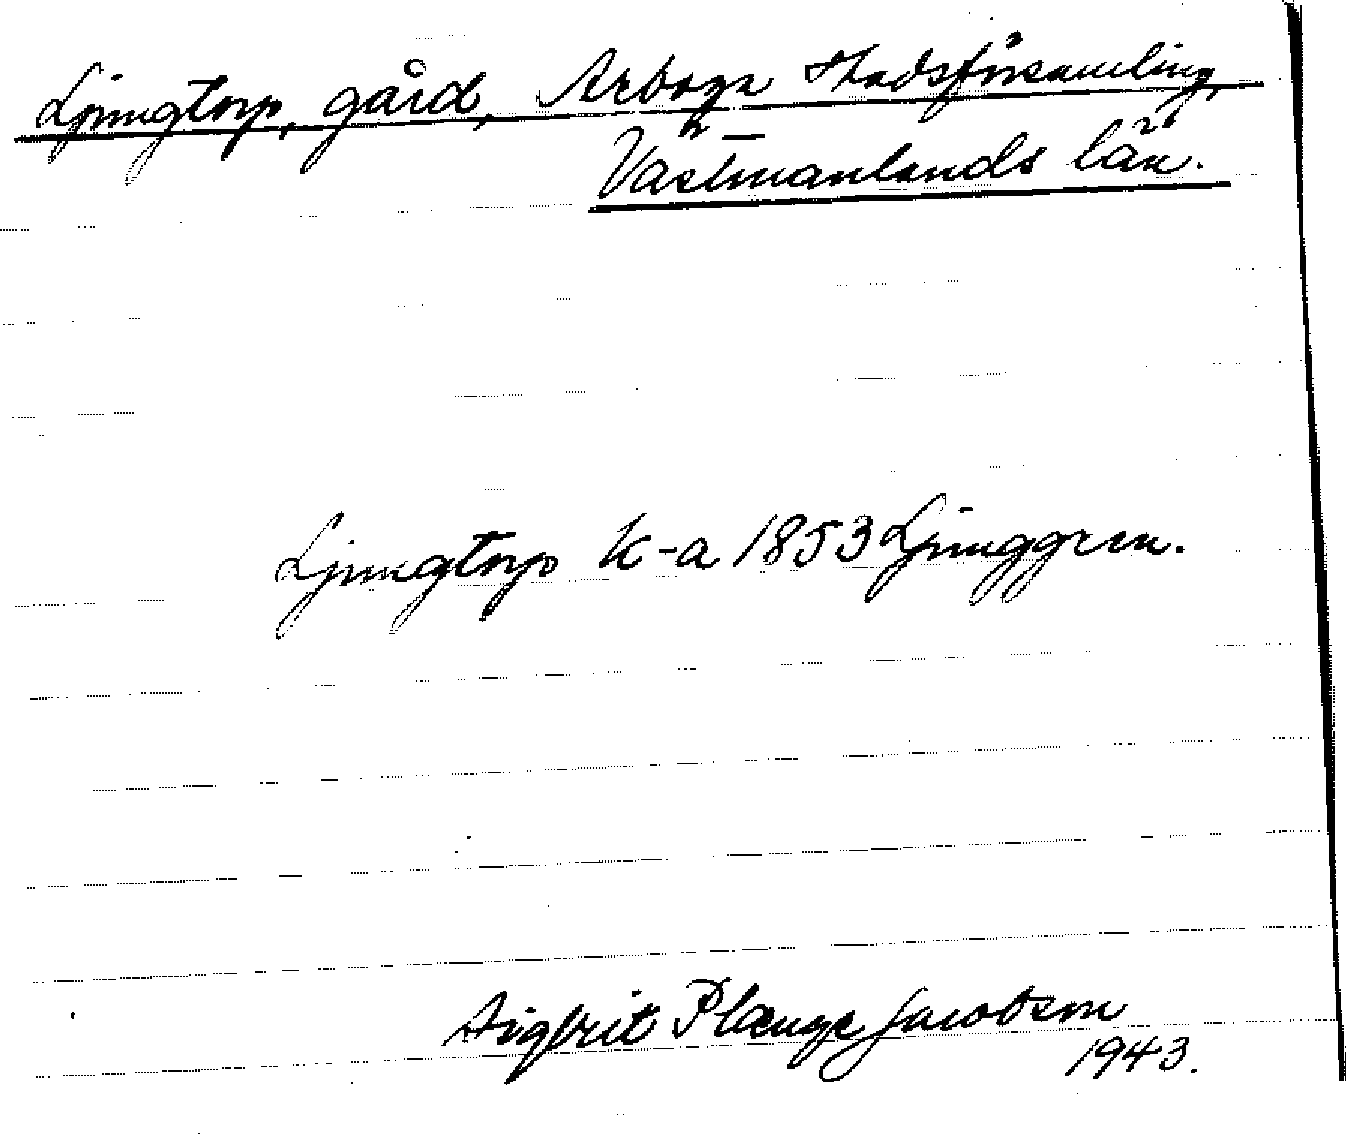 Ljungtorp, gård, Arboga stadsförsamling,
Västmanlands län.
Ljungtorp k-a 1853 Ljunggren.
Sigfrit Plange Jacobson
1943.